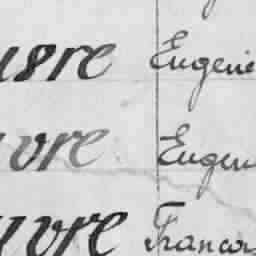 uvre Eugenie
uvre Eugen
uvre Francois